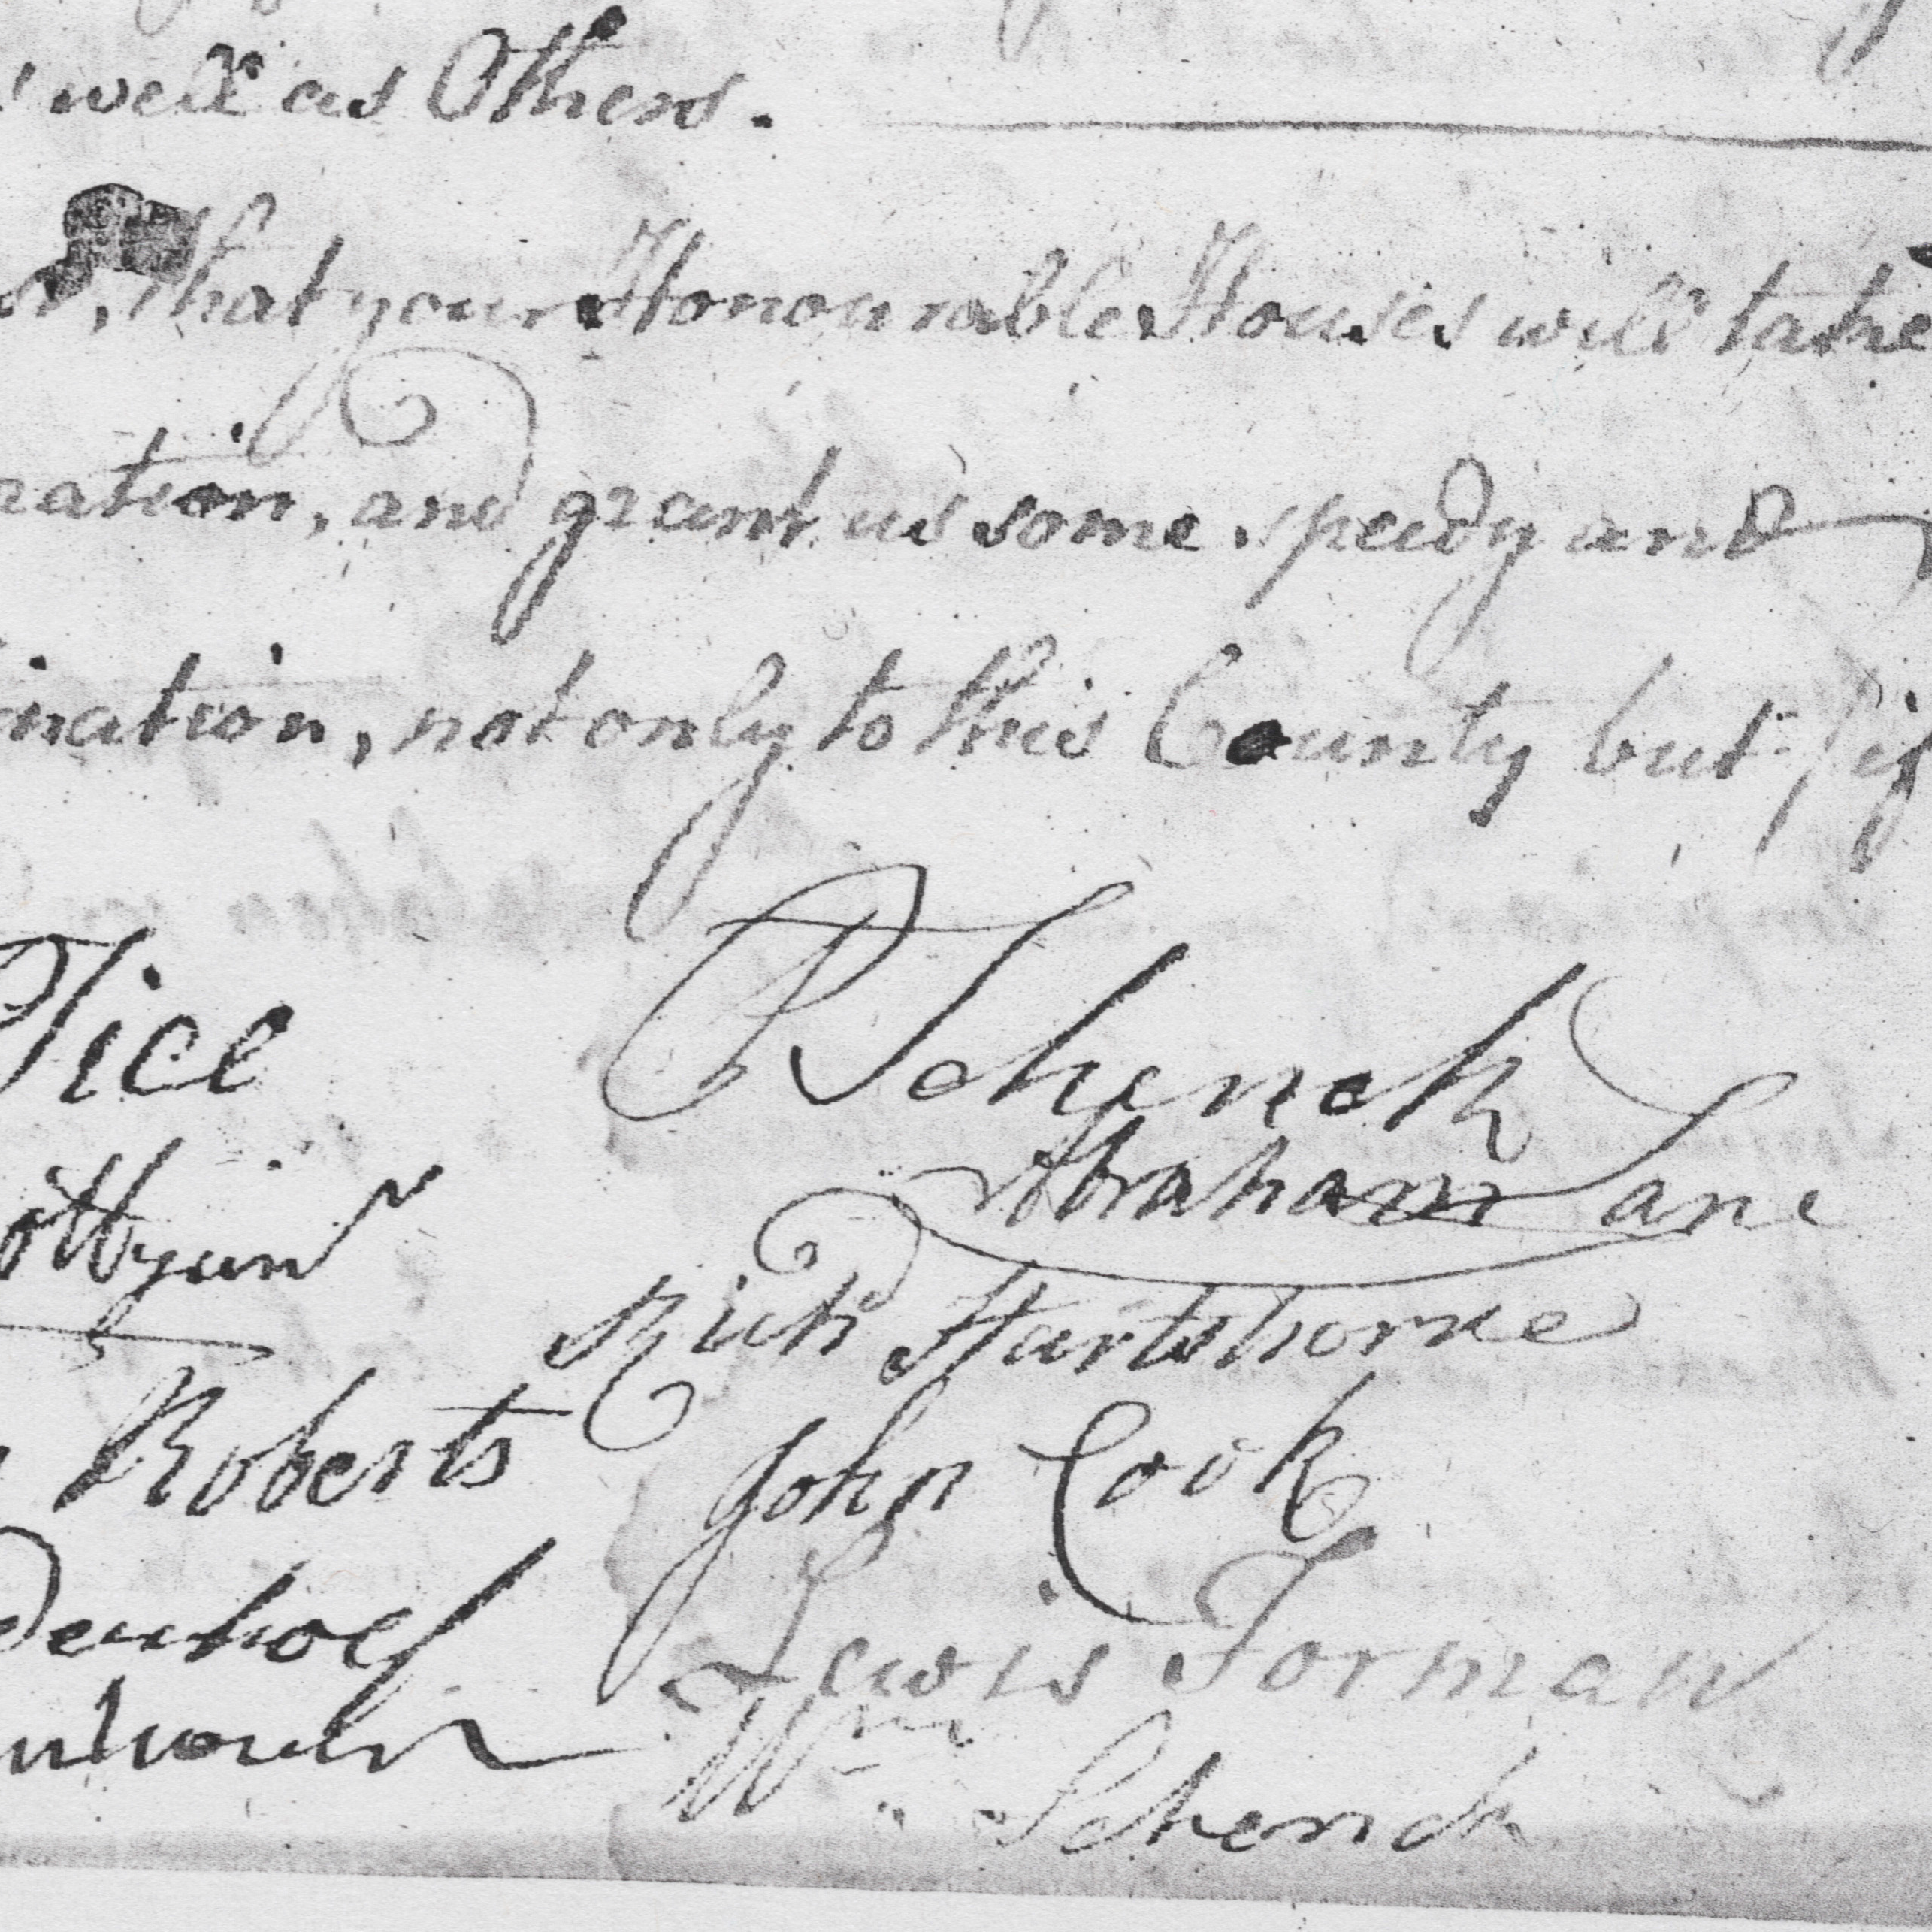 well as Others.
that your Honourable Houses will take
ration, and grant us some speedy and
ination, not only to this County but if
Tice
RSchenck
Abraham Lane
Rich Hartshorne
Roberts
John Cook
Lewis Forman
Wm Schenck